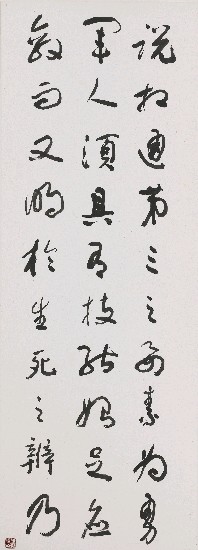 說通第三之要素為勇
軍人須具有技能始足應
敵而又明於生死之辨乃